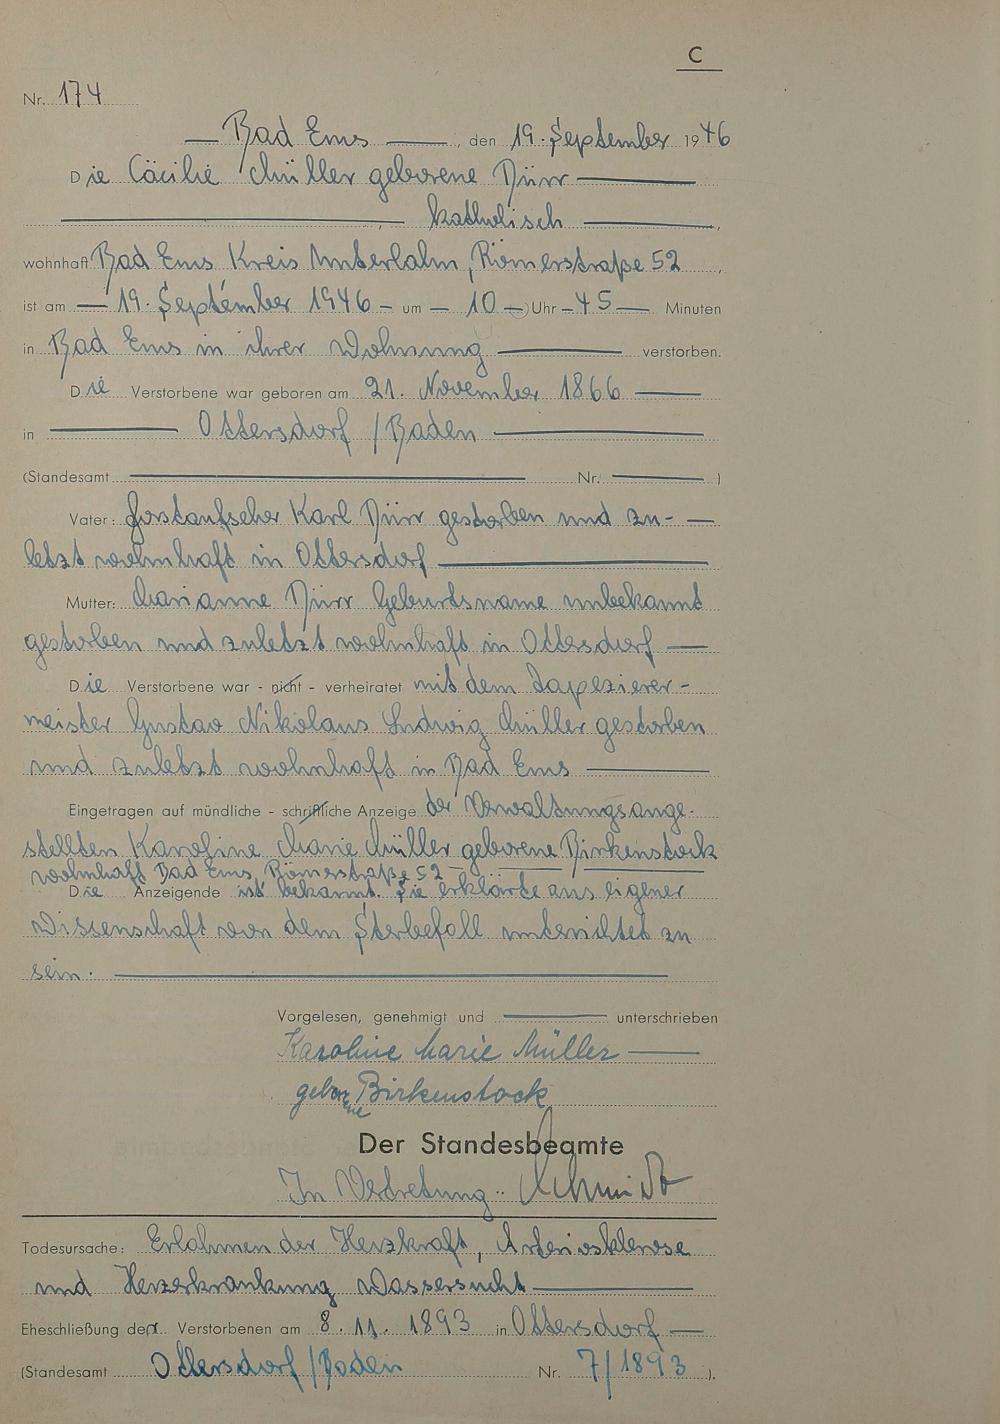 C
Nr. 174
Bad Ems, den 19. September 1946
Die Cäcilie Müller geborene Dürr
katholisch,
wohnhaft Bad Ems Kreis Unterlahn, Römerstraße 52,
ist am 19. September 1946 um 10 Uhr 45 Minuten
in Bad Ems in ihrer Wohnung verstorben.
Die Verstorbene war geboren am 21. November 1866
in Ottersdorf / Baden
(Standesamt Nr. )
Vater: Forstaufseher Karl Dürr gestorben und zu-
letzt wohnhaft in Ottersdorf
Mutter: Marianne Dürr Geburtsname unbekannt
gestorben und zuletzt wohnhaft in Ottersdorf
Die Verstorbene war - nicht - verheiratet mit dem Tapezierer-
meister Gustav Nikolaus Ludwig Müller gestorben
und zuletzt wohnhaft in Bad Ems
Eingetragen auf mündliche - schriftliche Anzeige der Verwaltungsange-
stellten Karoline Marie Müller geborene Birkenstock
wohnhaft Bad Ems, Römerstraße 52
Die Anzeigende ist bekannt. Sie erklärte aus eigener
Wissenschaft von dem Sterbefall unterrichtet zu
sein.
Vorgelesen, genehmigt und unterschrieben
Karoline Marie Müller
geborene Birkenstock
Der Standesbeamte
In Vertretung: Schmidt
Todesursache: Erlahmen der Herzkraft, Arteriosklerose
und Herzerkrankung Wassersucht
Eheschließung der Verstorbenen am 8. 11. 1893 in Ottersdorf
(Standesamt Ottersdorf / Baden Nr. 7/1893 ).